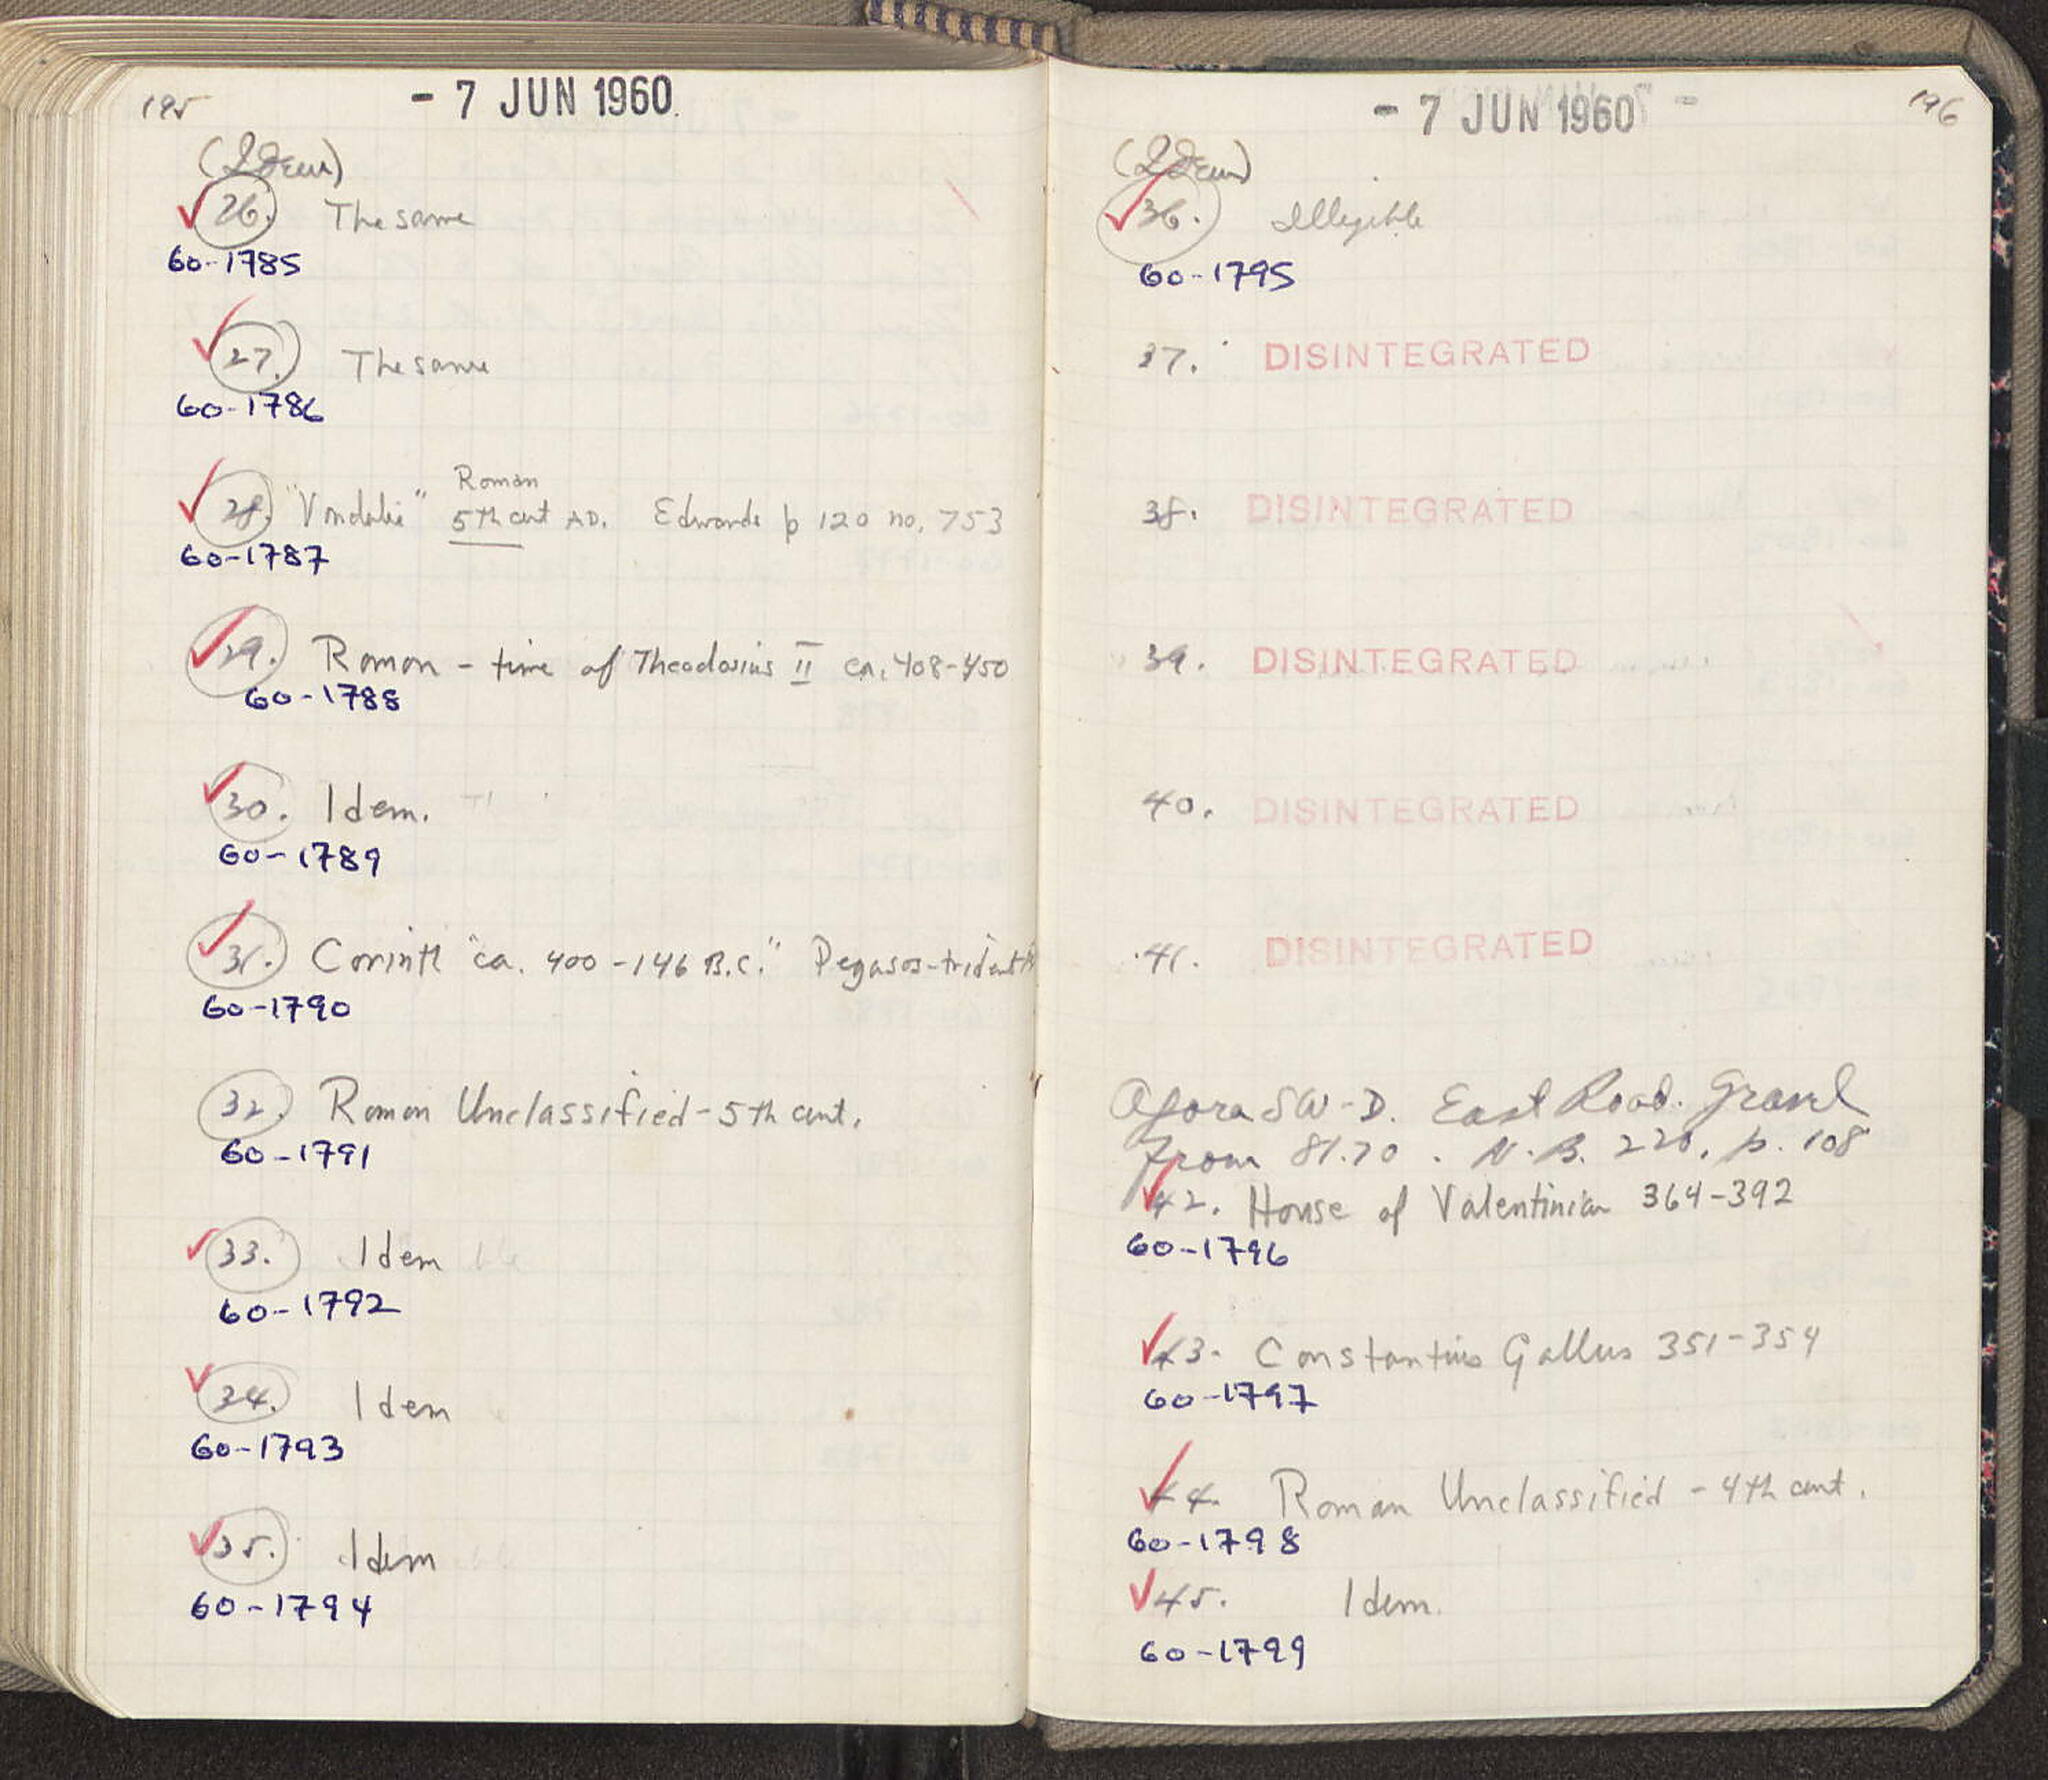 195
- 7 JUN 1960
(Idem)
26. The same
60-1785
27. The same
60-1786
Roman
28. "Vandalic" 5th cent AD. Edwards p 120 no. 753
60-1787
29. Roman - time of Theodosius II ca. 408-450
60-1788
30. Idem.
60-1789
31. Corinth "ca. 400-146 B.C." Pegasos-trident
60-1790
32. Roman Unclassified - 5th cent.
60-1791
33. Idem
60-1792
34. Idem
60-1793
35. Idem
60-1794
196
- 7 JUN 1960
(Idem)
36. Illegible
60-1795
37. DISINTEGRATED
38. DISINTEGRATED
39. DISINTEGRATED
40. DISINTEGRATED
41. DISINTEGRATED
Agora SW-D. East Road. Gravel
from 81.70. N.B. 220, p. 108
42. House of Valentinian 364-392
60-1796
43. Constantius Gallus 351-354
60-1797
44. Roman Unclassified - 4th cent.
60-1798
45. Idem.
60-1799